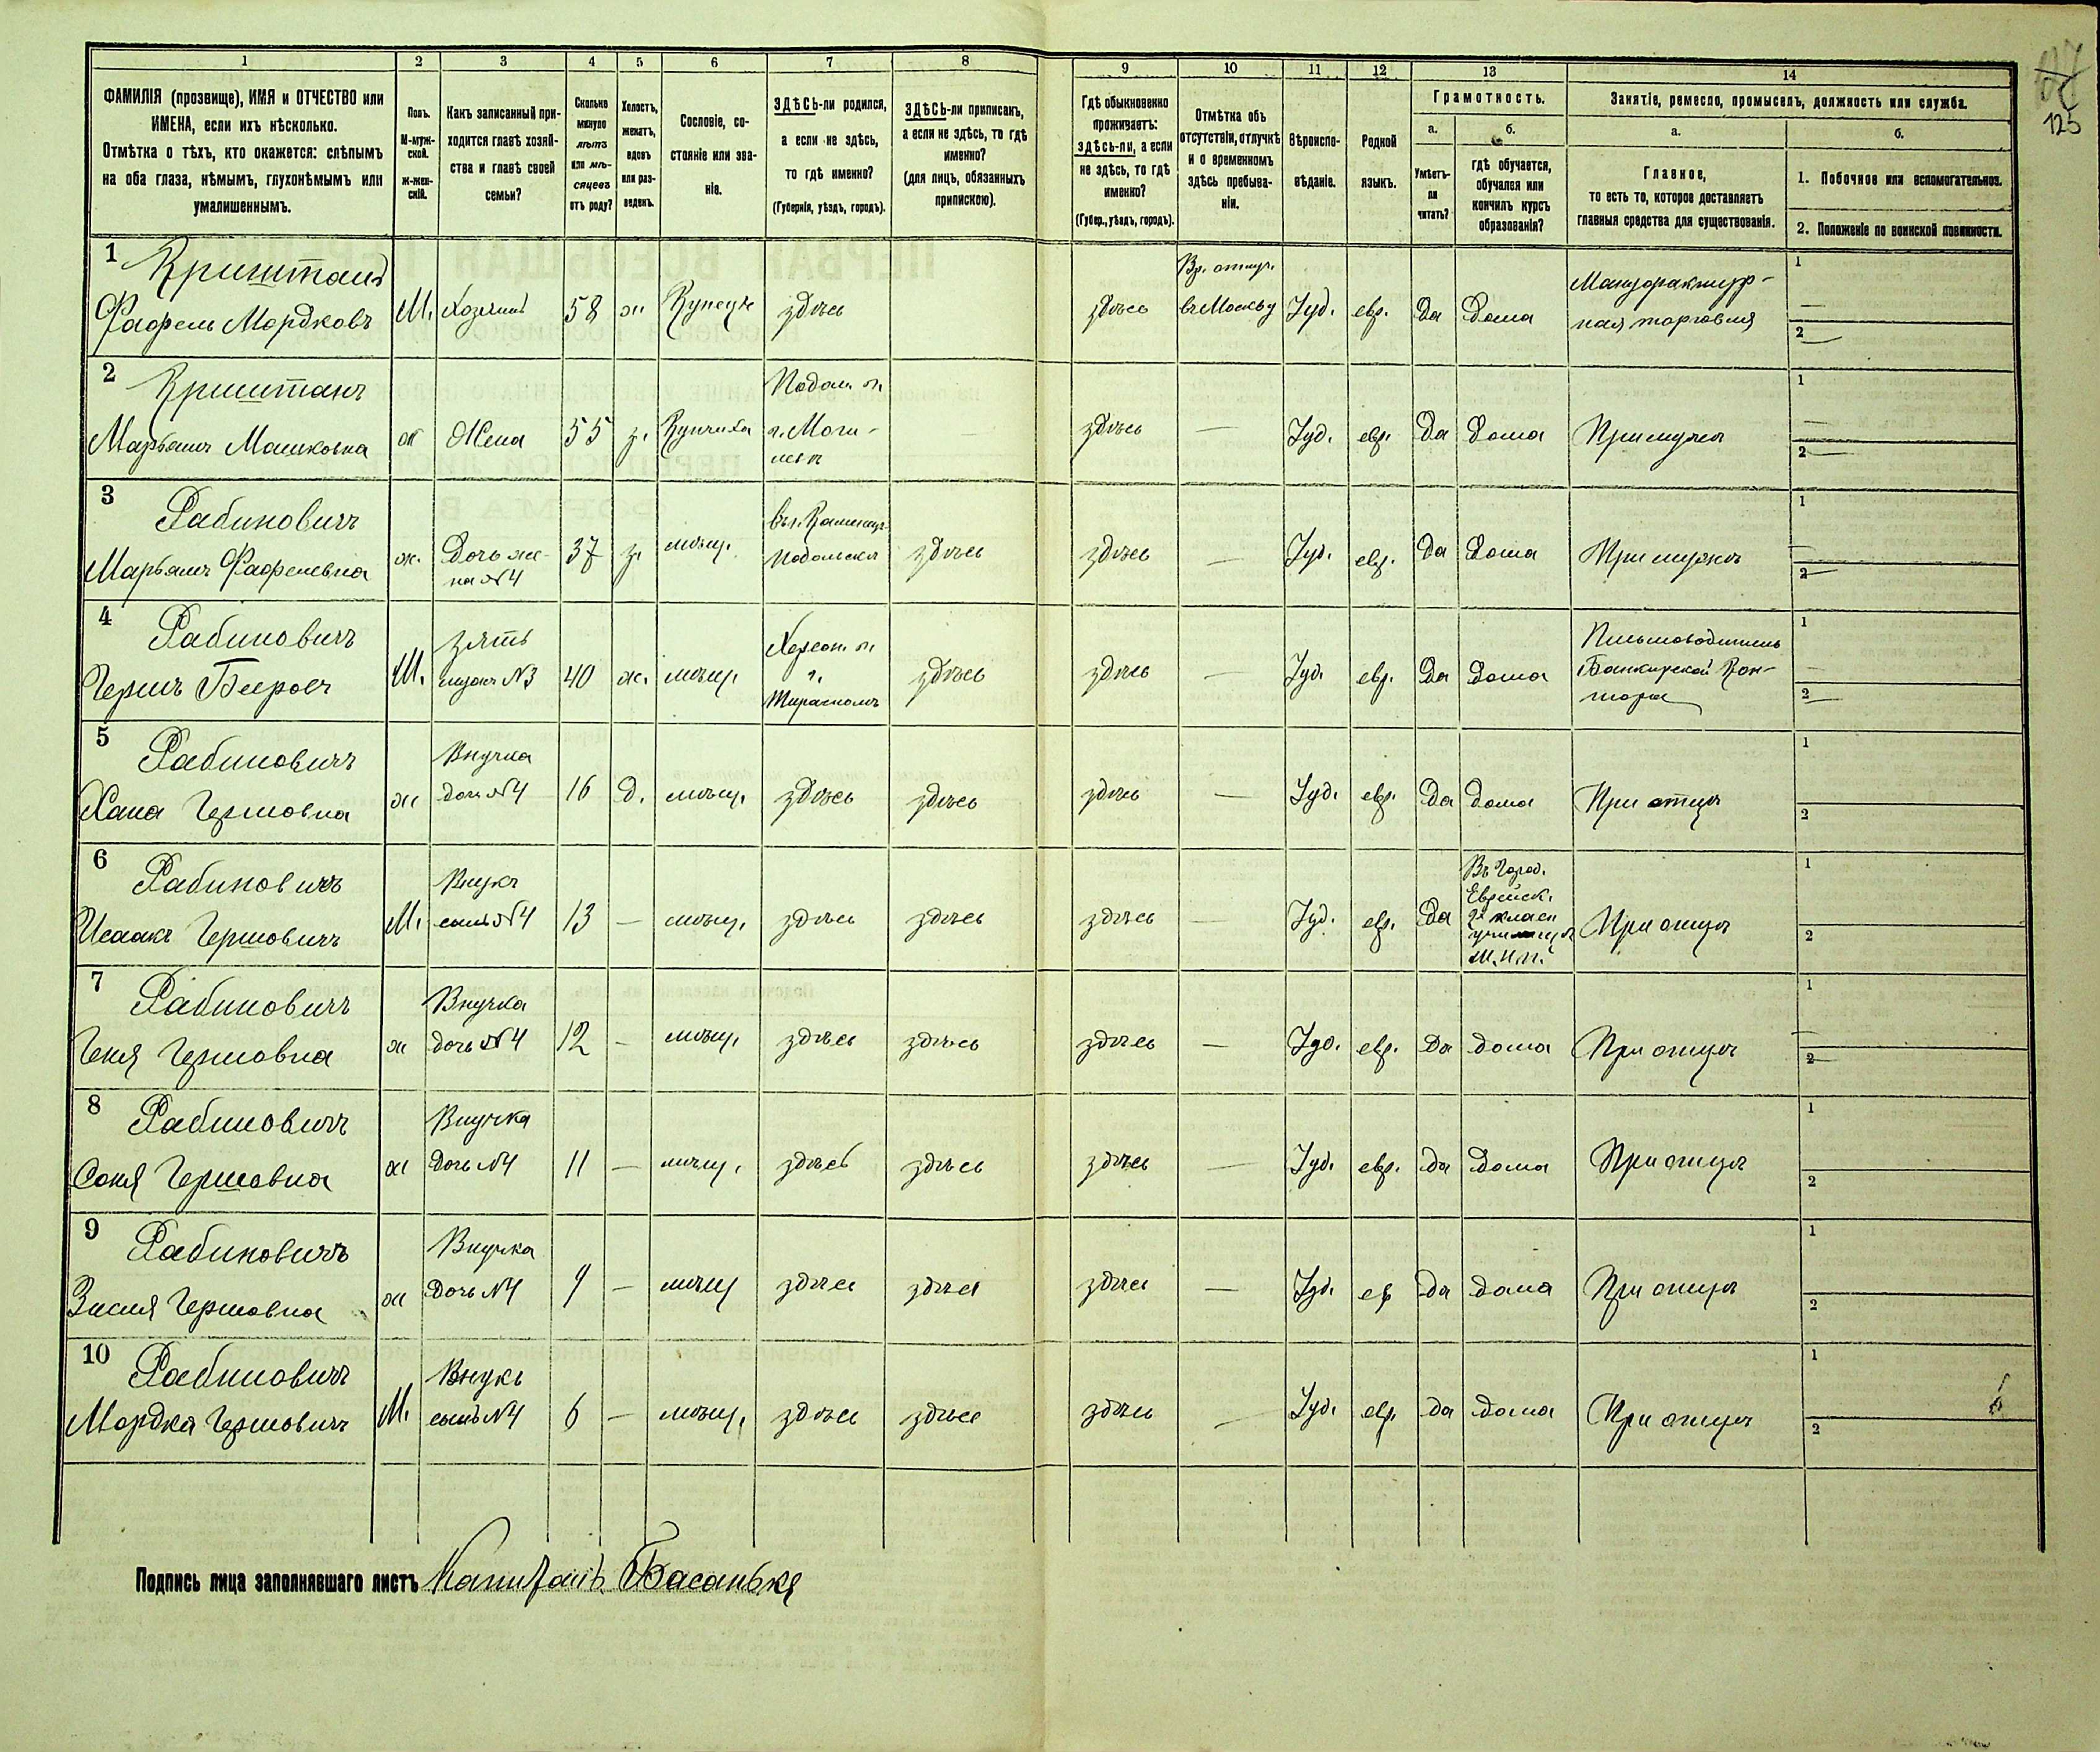 125
1 2 3 4 5 6 7 8 9 10 11 12 13 14
ФАМИЛІЯ (прозвище), ИМЯ и ОТЧЕСТВО или
ИМЕНА, если ихъ нѣсколько.
Отмѣтка о тѣхъ, кто окажется: слѣпымъ
на оба глаза, нѣмымъ, глухонѣмымъ или
умалишеннымъ.
Полъ.
М-муж-
ской.
ж-жен-
скій.
Какъ записанный при-
ходится главѣ хозяй-
ства и главѣ своей
семьи?
Сколько
минуло
лѣтъ
или мѣ-
сяцевъ
отъ роду?
Холостъ,
женатъ,
вдовъ
или раз-
веденъ.
Сословіе, со-
стояніе или зва-
ніе.
ЗДѢСЬ-ли родился,
а если не здѣсь,
то гдѣ именно?
(Губернія, уѣздъ, городъ).
ЗДѢСЬ-ли приписанъ,
а если не здѣсь, то гдѣ
именно?
(для лицъ, обязанныхъ
припискою).
Гдѣ обыкновенно
проживаетъ:
здѣсь-ли, а если
не здѣсь, то гдѣ
именно?
(Губер., уѣздъ, городъ).
Отмѣтка объ
отсутствіи, отлучкѣ
и о временномъ
здѣсь пребыва-
ніи.
Вѣроиспо-
вѣданіе.
Родной
языкъ.
Грамотность.
а.
Умѣетъ-
ли
читать?
б.
гдѣ обучается,
обучался или
кончилъ курсъ
образованія?
Занятіе, ремесло, промыселъ, должность или служба.
а.
Главное,
то есть то, которое доставляетъ
главныя средства для существованія.
б.
1. Побочное или вспомогательное.
2. Положеніе по воинской повинности.
1 Криштанъ Вр. отлуч. Мануфактур-
Фафель Мордковъ М. Хозяинъ 58 ж Купецъ здѣсь здѣсь въ Москву Іуд. евр. Да Дома ная торговля
2 Криштанъ Подол. г.
Марьямъ Мошковна ж Жена 55 з. Купчиха г. Моги- здѣсь — Іуд. евр. Да Дома При мужѣ
левъ
3 Рабиновичъ въ г. Каменцѣ
Марьямъ Фафелевна ж. Дочь же- 37 з. мѣщ. Подольскѣ здѣсь здѣсь — Іуд. евр. Да Дома При мужѣ
на №4
4 Рабиновичъ Зять Херсон. г. Письмоводитель
Гершъ Беровъ М. мужъ №3 40 ж. мѣщ. г. здѣсь здѣсь — Іуд. евр. Да Дома Банкирской Кон-
Тирасполь торы
5 Рабиновичъ Внучка
Хана Гершовна ж дочь №4 16 д. мѣщ. здѣсь здѣсь здѣсь — Іуд. евр. Да дома При отцѣ
6 Рабиновичъ Внукъ Въ Город.
Еврейск.
Исаакъ Гершовичъ М. сынъ №4 13 — мѣщ. здѣсь здѣсь здѣсь — Іуд. евр. Да 2х класн При отцѣ
училищѣ
7 Рабиновичъ Внучка
Геня Гершовна ж дочь №4 12 — мѣщ. здѣсь здѣсь здѣсь — Іуд. евр. Да дома При отцѣ
8 Рабиновичъ Внучка
Соня Гершовна ж Дочь №4 11 — мѣщ. здѣсь здѣсь здѣсь — Іуд. евр. да Дома При отцѣ
9 Рабиновичъ Внучка
Зисля Гершовна ж Дочь №4 9 — мѣщ здѣсь здѣсь здѣсь — Іуд. ев да дома При отцѣ
10 Рабиновичъ Внукъ
Мордка Гершовичъ М. сынъ №4 6 — мѣщ. здѣсь здѣсь здѣсь — Іуд. евр. да дома При отцѣ
Подпись лица заполнявшаго листъ Капитанъ Басанько